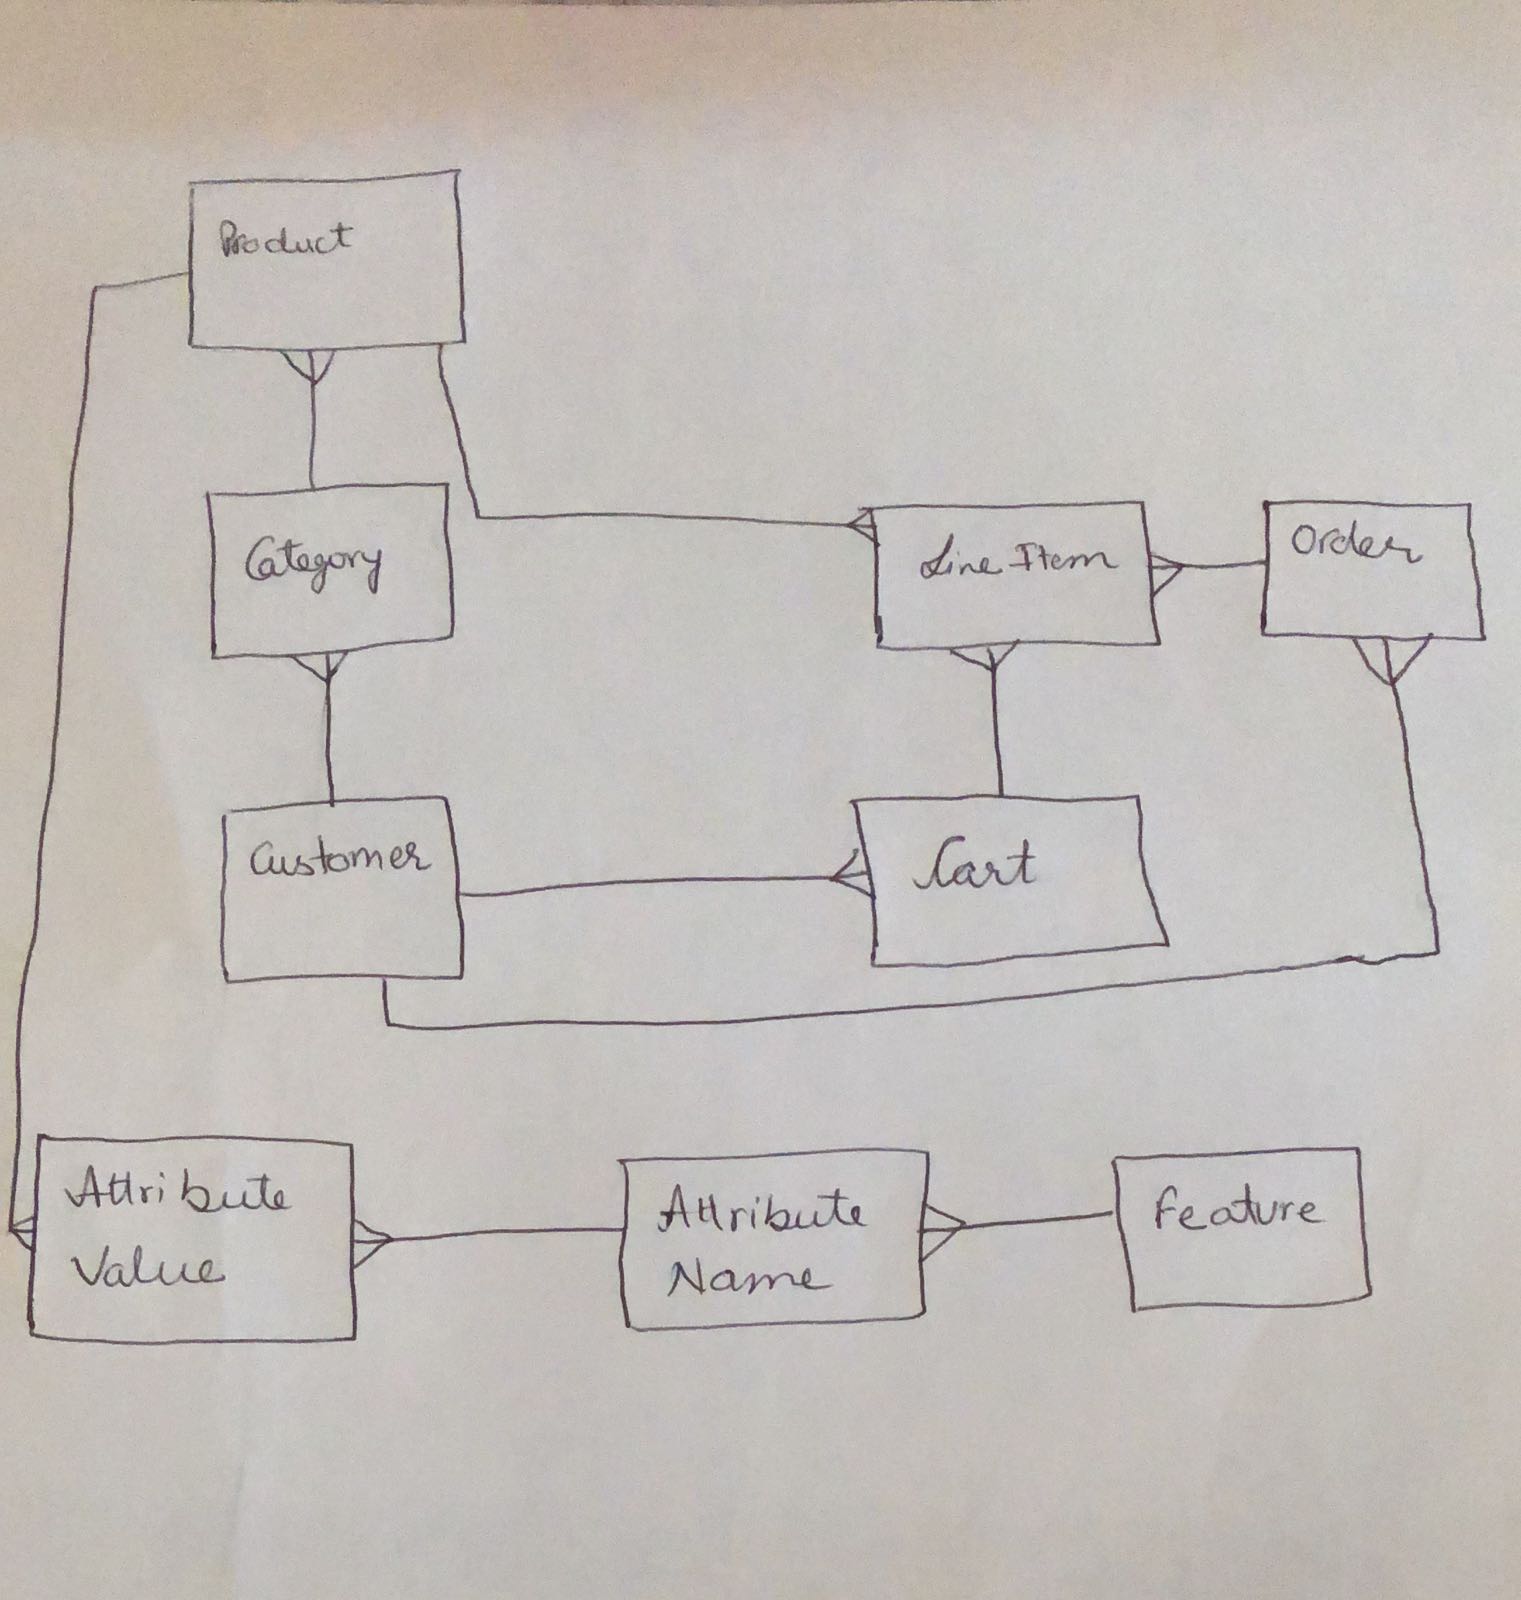 Product
Category
Line Item
Order
Customer
Cart
Attribute
Value
Attribute
Name
Feature